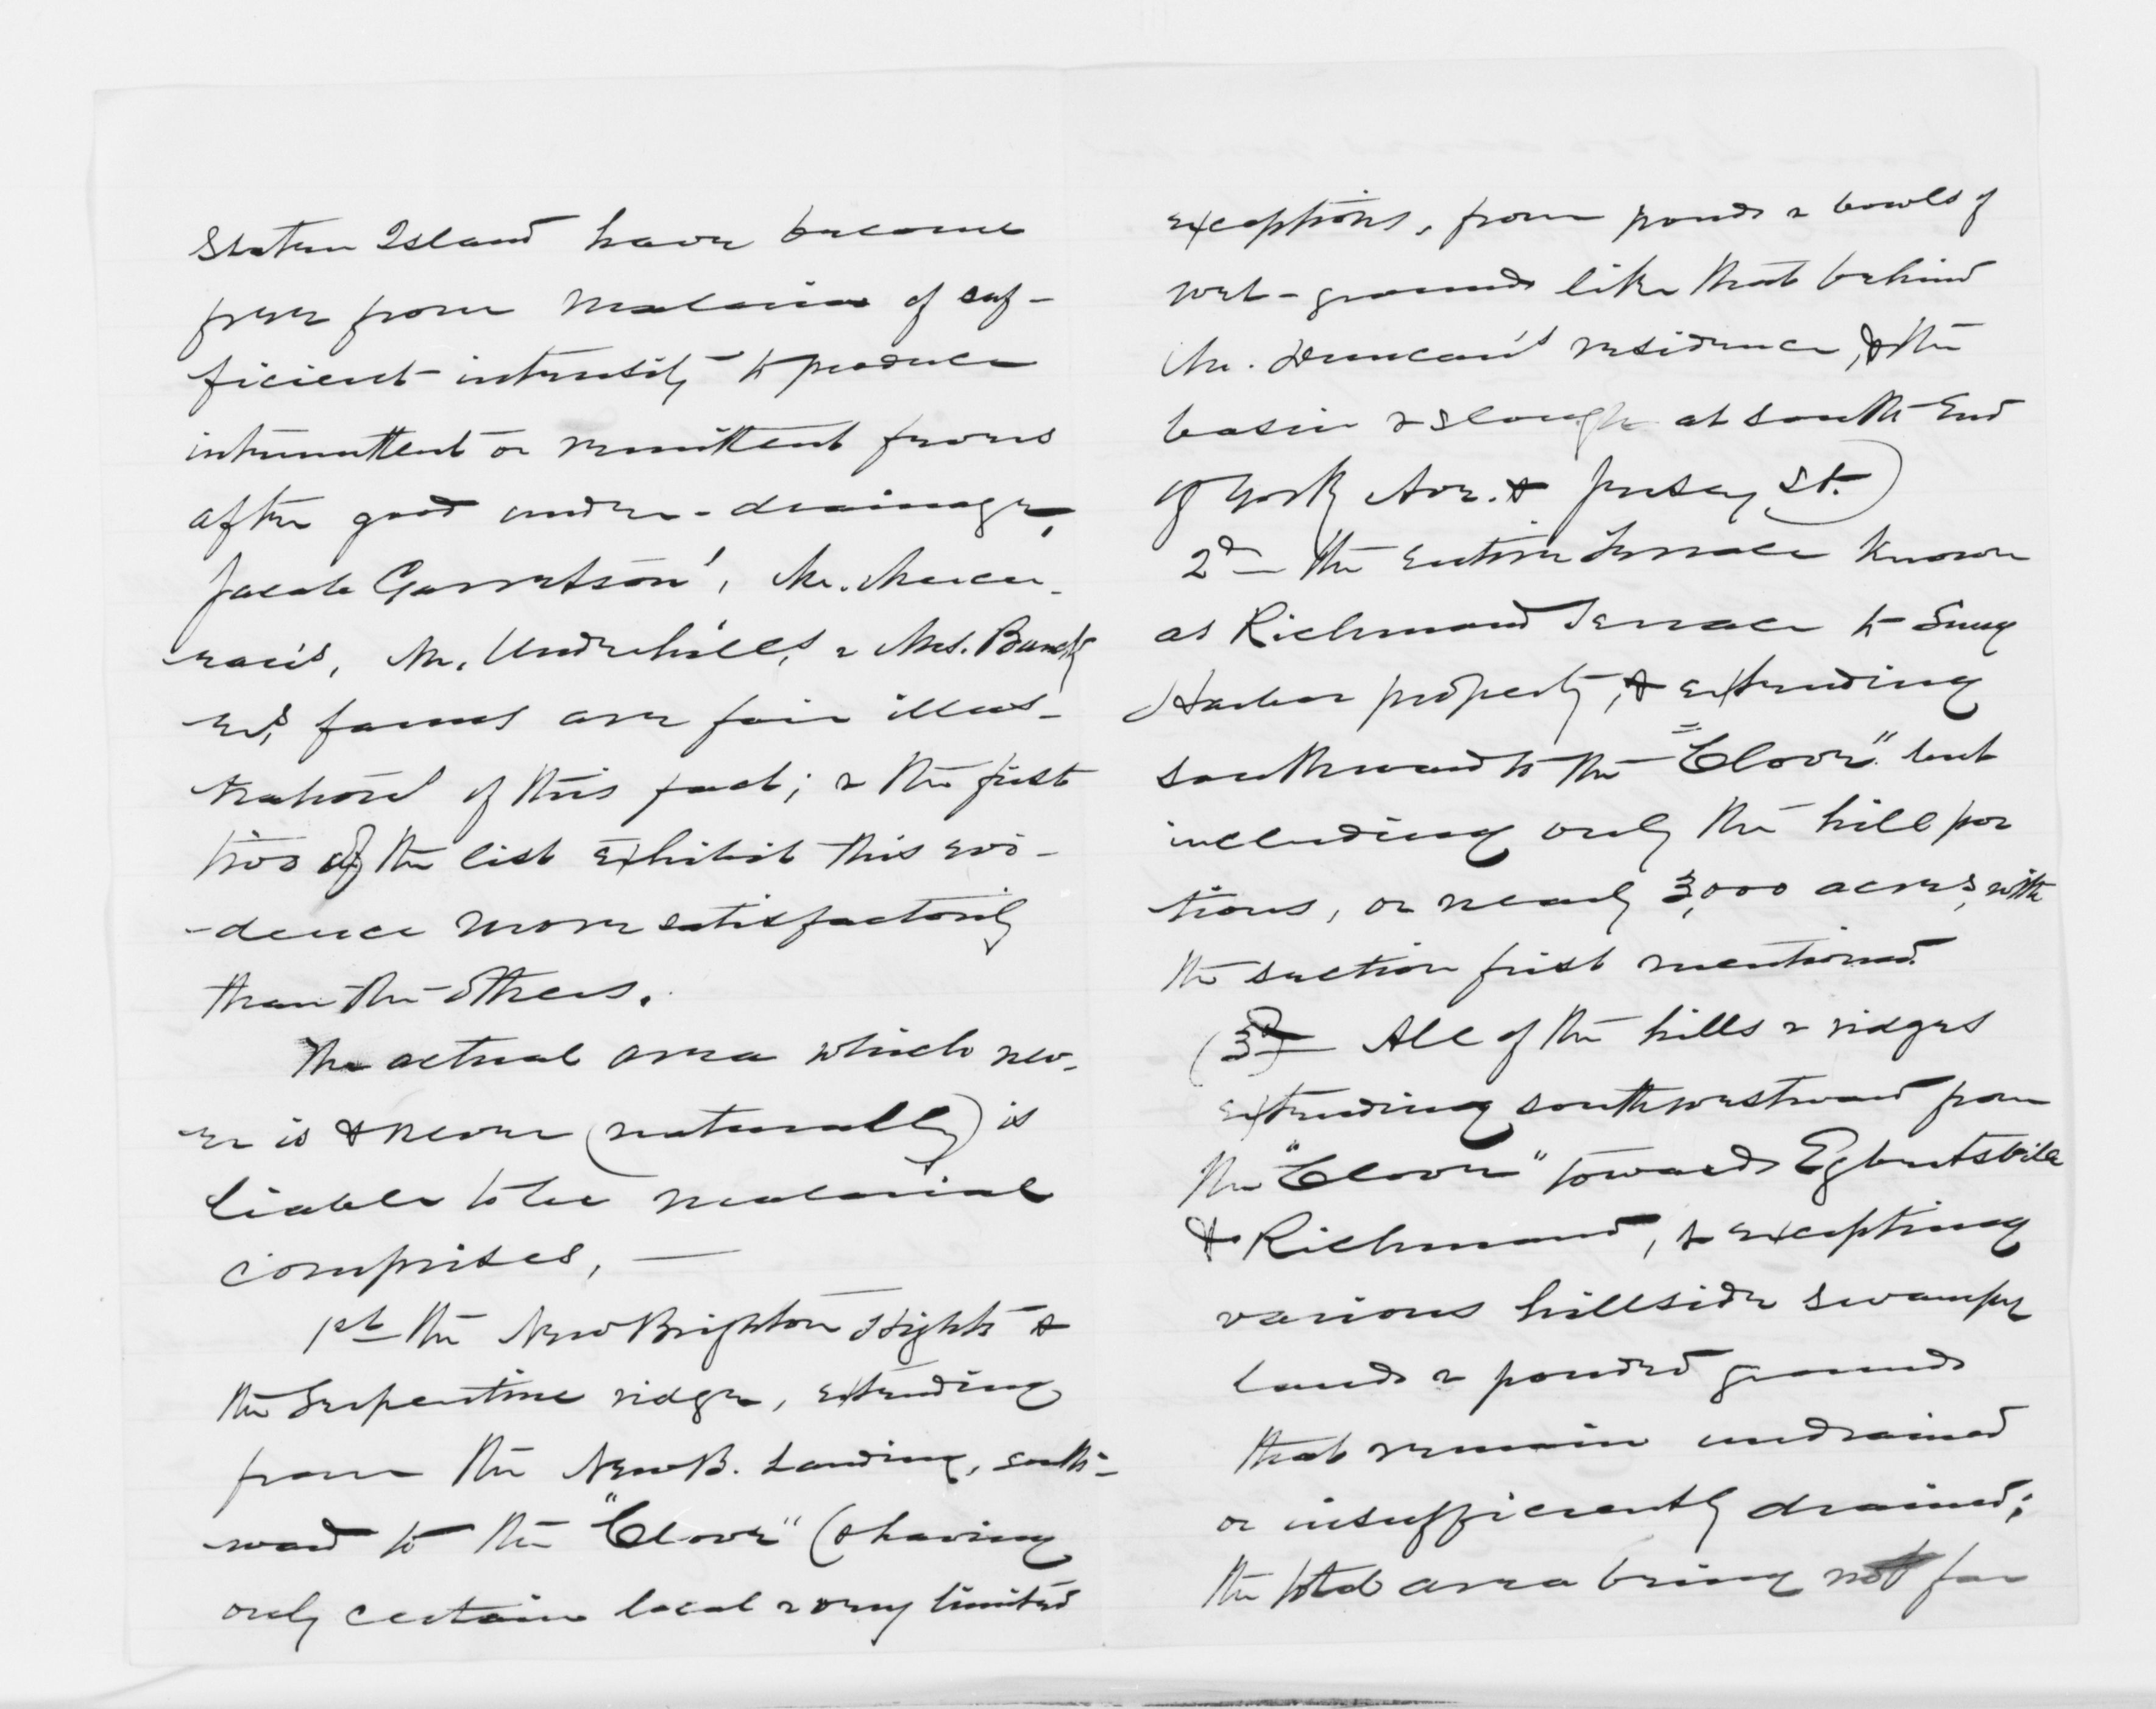 Staten Island have become
free from malaria of suf-
ficient intensity to produce
intermittent or remittent fevers
after good under-drainage.
Jacob Garretson', Mr.
Mr. Underhill's, & Mrs.
er's farms are fair illus-
trations of this fact; & the first
two of the list exhibit this evi-
-dence more satisfactorily
than the others.
The actual area which nev-
er is & never (naturally) is
liable to be malarial
comprises, —
1st the New Brighton Hights &
the Serpentine ridge, extending
from the New B. Landing, south-
ward to the "Clove" (& having
only certain local & very limited
exceptions, from ponds & bowls of
wet-grounds like that behind
Mr. Duncan's residence, & the
basin & slough at south End
of York Ave. & Jersey St.)
2d the entire terrace known
as Richmond Terrace to Snug
Harbor property, & extending
southward to the "Clove" but
including only the hill por
tions, or nearly 3,000 acres, with
the section first mentioned.
(3d) All of the hills & ridges
extending southwestward from
the "Clove" towards Egbertsville
& Richmond, & excepting
various hillside swampy
lands & ponded grounds
that remain undrained
or insufficiently drained;
the total area being not far